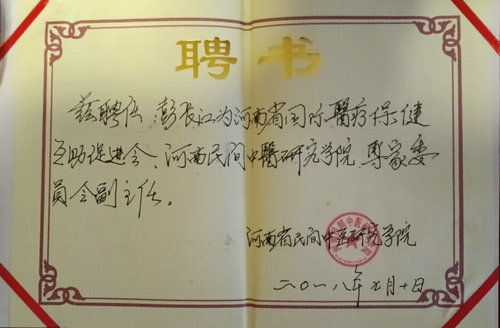 聘书
兹聘任：彭长江为河南省国际醫疗保健
互助促进会、河南民间中醫研究学院專家委
员会副主任。
河南省民间中医研究学院
二〇一八年七月十日